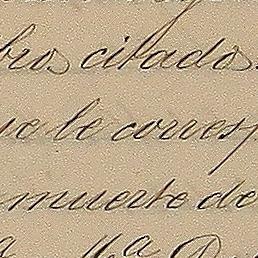 bros citados.
ue le corresp
muerte de